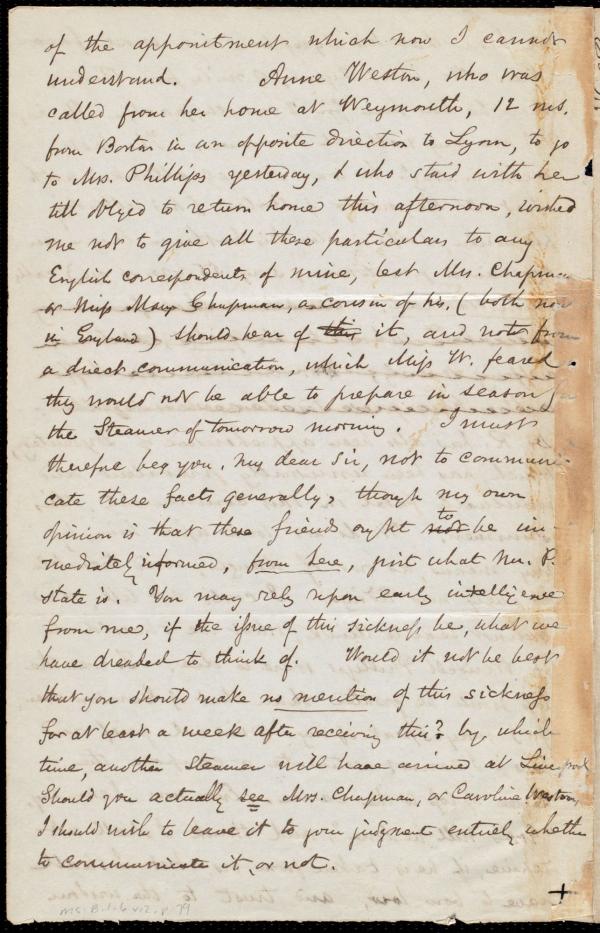 of the appointment which now I cannot
understand. Anne Weston, who was
called from her home at Weymouth, 12 ms.
from Boston in an opposite direction to Lynn, to go
to Mrs. Phillips yesterday, & who staid with her
till obliged to return home this afternoon, wished
me not to give all these particulars to any
English correspondents of mine, lest Mrs. Chapman
or Miss Mary Chapman, a cousin of his, (both now
in England) should hear of this it, and not from
a direct communication, which Miss W. feared
they would not be able to prepare in season for
the Steamer of tomorrow morning. I must
therefore beg you, my dear Sir, not to communi-
cate these facts generally, though my own
opinion is that these friends ought not to be im-
mediately informed, from here, just what Mr. P.'s
state is. You may rely upon early intelligence
from me, if the issue of this sickness be, what we
have dreaded to think of. Would it not be best
that you should make no mention of this sickness
for at least a week after receiving this? by which
time, another Steamer will have arrived at Liverpool
Should you actually see Mrs. Chapman, or Caroline Weston,
I should wish to leave it to your judgment entirely whether
to communicate it, or not.
+
MS. B.1.6 v.2. p. 79